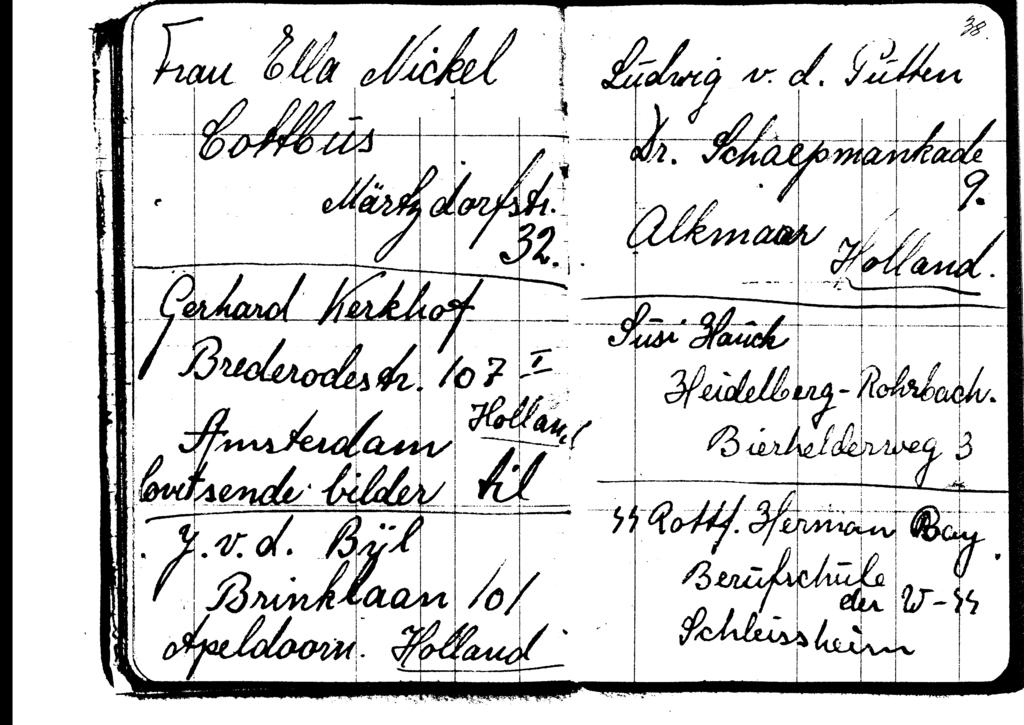 Frau Ella Nickel
Cottbus
Märtzdorfstr.
32.
Gerhard Kerkhof
Brederodestr. 107 I
Holland
Amsterdam
lovet sende bilder til
J. v. d. Bÿl
Brinklaan 101
Apeldoorn. Holland
38.
Ludwig v. d. Pütten
Dr. Schaepmankade
9.
Alkmaar
Holland.
Susi Hauck
Heidelberg-Rohrbach.
Bierhelderweg 3
SS Rottf. Herman Bay
Berufschule
der W-SS
Schleissheim